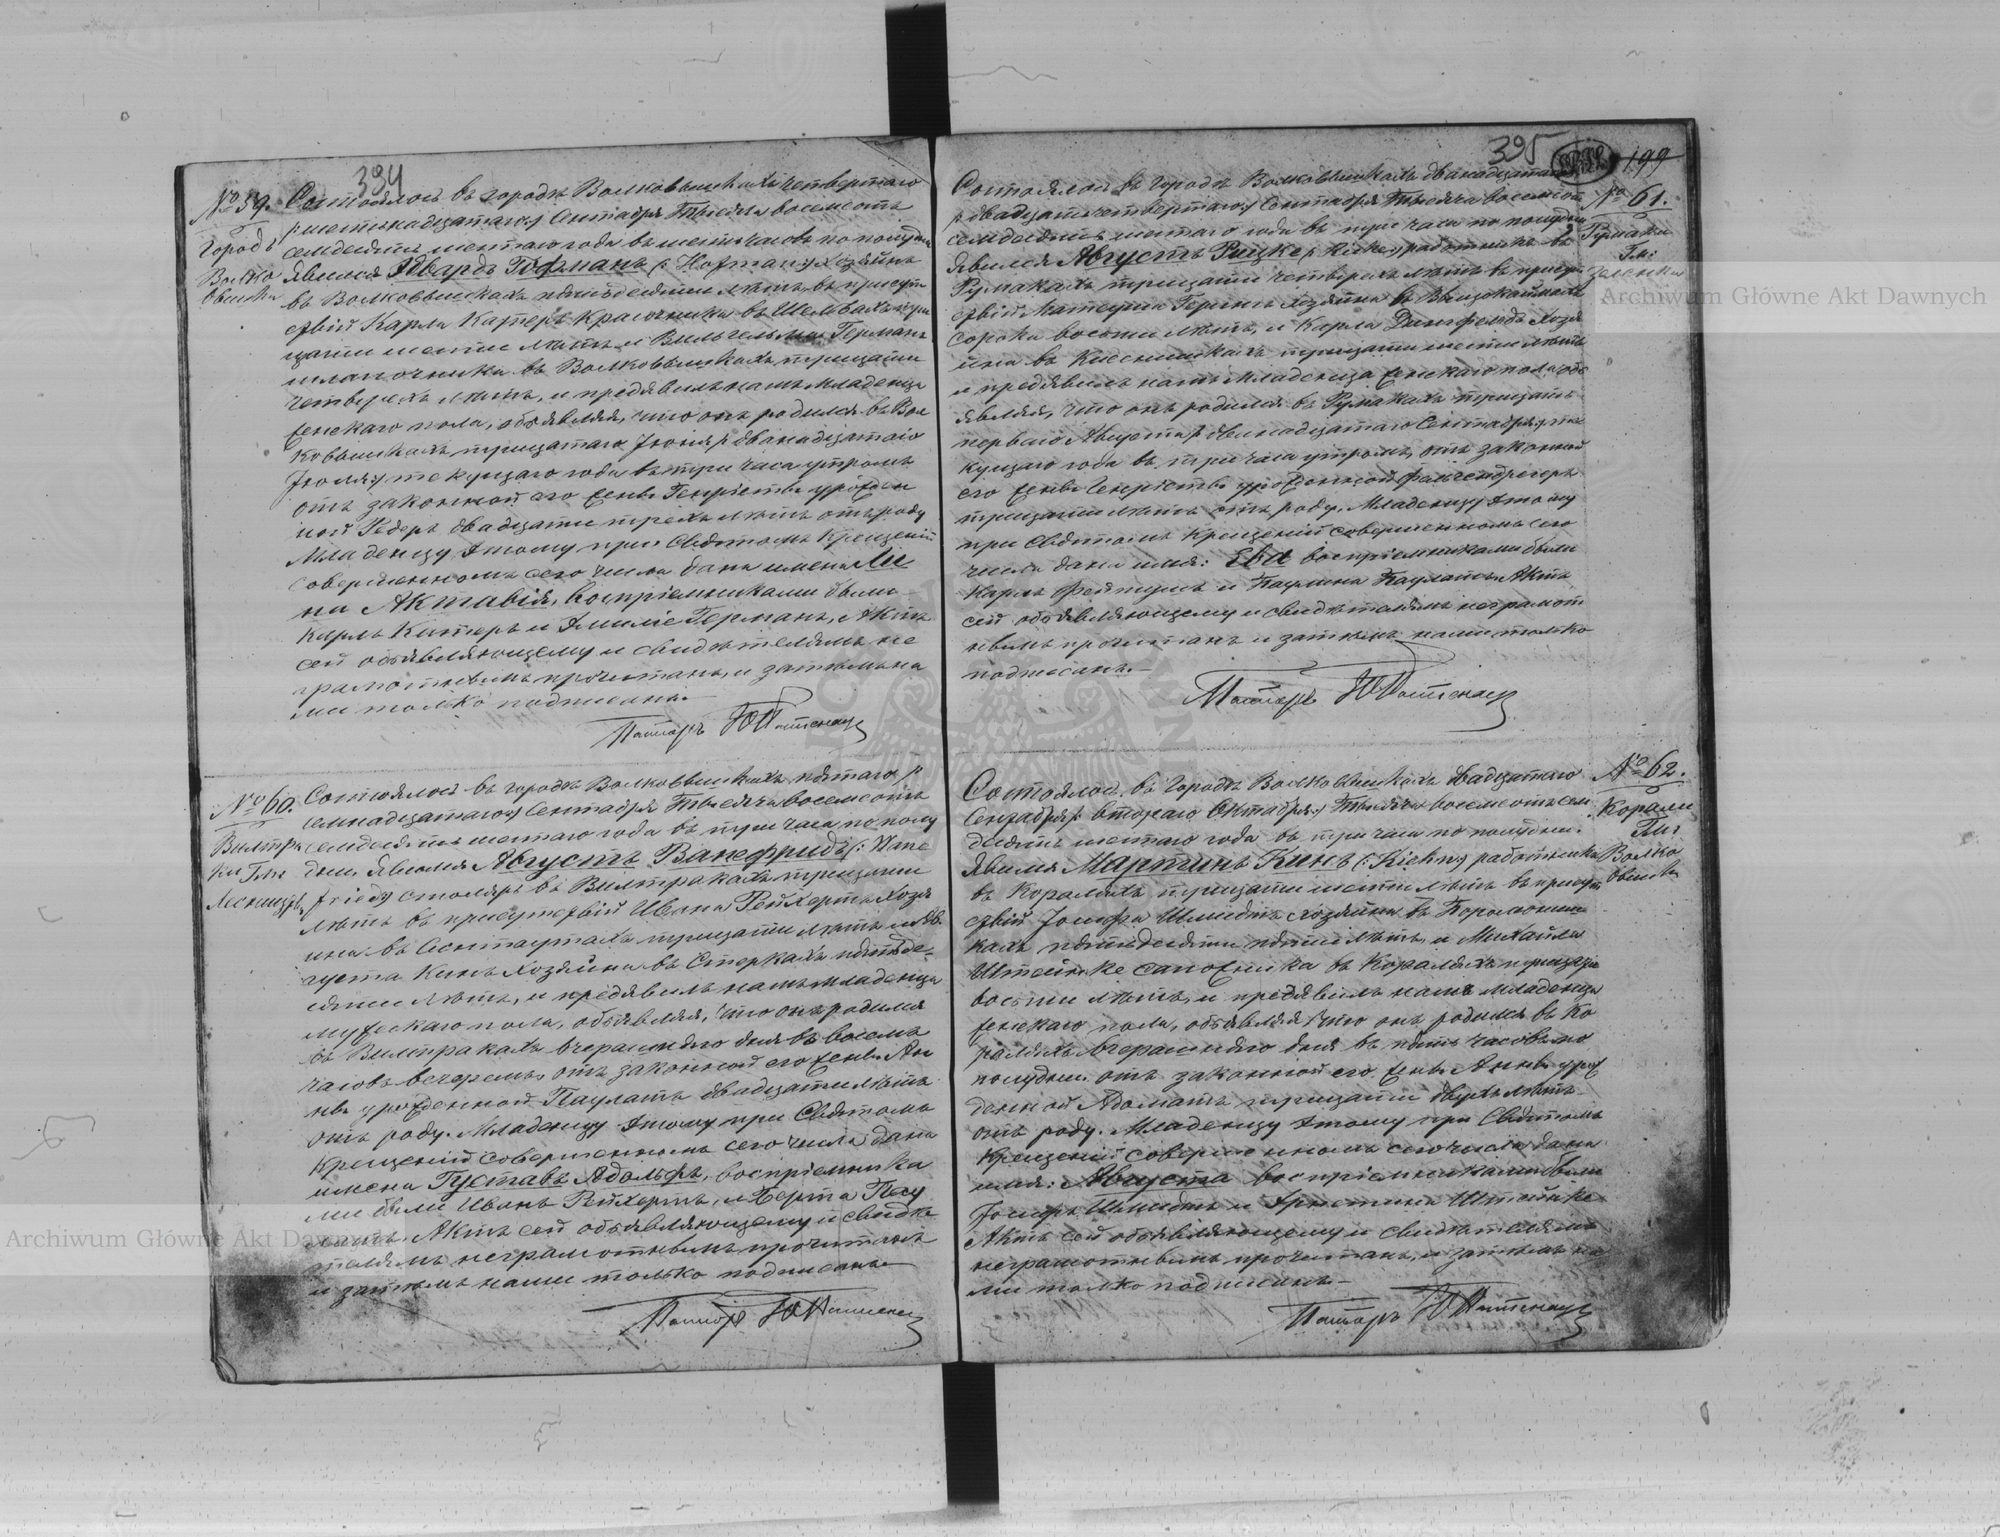 394
№ 59.
Городъ
Волко
вышки
Состоялось въ городѣ Волковышкахъ четвертаго
/:шестнадцатаго:/ Сентября Тысяча восемьсотъ
семдесятъ шестаго года въ шесть часовъ по полудни
явился Эдвардъ Гофманъ (: Hofman:) хозяинъ
въ Волковышкахъ пятьдесяти лѣтъ, въ присут
ствiи Карла Катеръ красильника въ
цати шести лѣтъ и Вильгельма Германъ
шапочника въ Волковышкахъ тридцати
четырехъ лѣтъ, и предъявилъ намъ младенца
женскаго пола, объявляя, что онъ родился въ Вол
ковышкахъ тридцатаго Iюня /: двѣнадцатаго
Iюля:/ текущаго года въ три часа утромъ
отъ законной его жены Генрiетты урожден
ной Редеръ двадцати трехъ лѣтъ отъ роду
Младенцу этому при Святомъ Крещенiи
совершенномъ сего числа дана имена Ли
на Актавiя, воспрiемниками были
Карлъ Катеръ и Эмилiе Германъ, Актъ
сей объявляющему и свидѣтелямъ не
грамотнымъ прочитанъ, и затѣмъ на
ми только подписанъ.
Пасторъ
№ 60.
Вилтра
ки Гм:
Состоялось въ городѣ Волковышкахъ пятаго /:
семнадцатаго:/ Сентября Тысяча восемьсотъ
семдесятъ шестаго года въ три часа по полу
дни. Явился Августъ Ванефридъ (: Wane
fried:) столяръ въ Вилтракахъ тридцати
лѣтъ въ присутствiи Ивана Рейхертъ хозя
ина въ тридцати лѣтъ и Ав
густа Кинъ хозяина въ Стеркахъ пятьде-
сяти лѣтъ, и предъявилъ намъ младенца
мужескаго пола, объявляя, что онъ родился
въ Вилтракахъ вчерашняго дня въ восемь
часовъ вечеромъ, отъ законной его жены Ан
ны урожденной Паулатъ двадцати лѣтъ
отъ роду. Младенцу этому при Святомъ
Крещенiи совершенномъ сего числа дана
имена Густавъ Адольфъ, воспрiемника
ми были Иванъ Рейхертъ, и Берта Пау
латъ Актъ сей объявляющему и свидѣ
телямъ неграмотнымъ прочитанъ
и затѣмъ нами только подписанъ
Пасторъ
395
199
№ 61.
Румаки
Гм:
Состоялось въ городѣ Волковышкахъ двѣнадцатаго
/: двадцать четвертаго:/ Сентября Тысяча восемьсотъ
семдесятъ шестаго года въ три часа по полудни
Явился Августъ Рицке работникъ въ
Румакахъ тридцати четырехъ лѣтъ въ присут
ствiи Матеуша Герингъ хозяина въ
сорока восьми лѣтъ, и Карла хозя
ина въ тридцати шести лѣтъ
и предъявилъ намъ младенца женскаго пола, объ
являя, что онъ родился въ Румакахъ тридцать
перваго Августа /: двенадцатаго Сентября:/ те
кущаго года въ три часа утромъ, отъ законной
его жены Генрiетты урожденной
тридцати лѣтъ отъ роду. Младенцу этому
при Святомъ Крещенiи совершенномъ сего
числа дана имя: Ева воспрiемниками были
Карлъ и Паулина Паулатъ. Актъ
сей объявляющему и свидѣтелямъ неграмот
нымъ прочитанъ и затѣмъ нами только
подписанъ.
Пасторъ
№ 62.
Корали
Гм:
Волко
вышки
Состоялось въ городѣ Волковышкахъ двадцатаго
Сентября /: втораго Октября:/ Тысяча восемьсотъ сем
десятъ шестаго года въ три часа по полудни.
Явился Мартинъ Кинъ (: Kiehn:) работникъ
въ Кораляхъ тридцати шести лѣтъ въ присут
ствiи Iосифа Шмидтъ хозяина въ
кахъ пятьдесяти пяти лѣтъ, и Михаила
Штейнке сапожника въ Кораляхъ тридцати
восьми лѣтъ, и предъявилъ намъ младенца
женскаго пола, объявляя что онъ родился въ Ко
раляхъ вчерашняго дня въ пять часовъ по
полудни. отъ законной его жены Анны урож
денной Адоматъ тридцати двухъ лѣтъ
отъ роду. Младенцу этому при Святомъ
Крещенiи совершенномъ сего числа дана
имя: Августа воспрiемниками были
Iосифъ Шмидтъ и Эрнестина Штейнке
Актъ сей объявляющему и свидѣтелямъ
неграмотнымъ прочитанъ, и затѣмъ на
ми только подписанъ.
Пасторъ
Archiwum Główne Akt Dawnych
Archiwum Główne Akt Dawnych